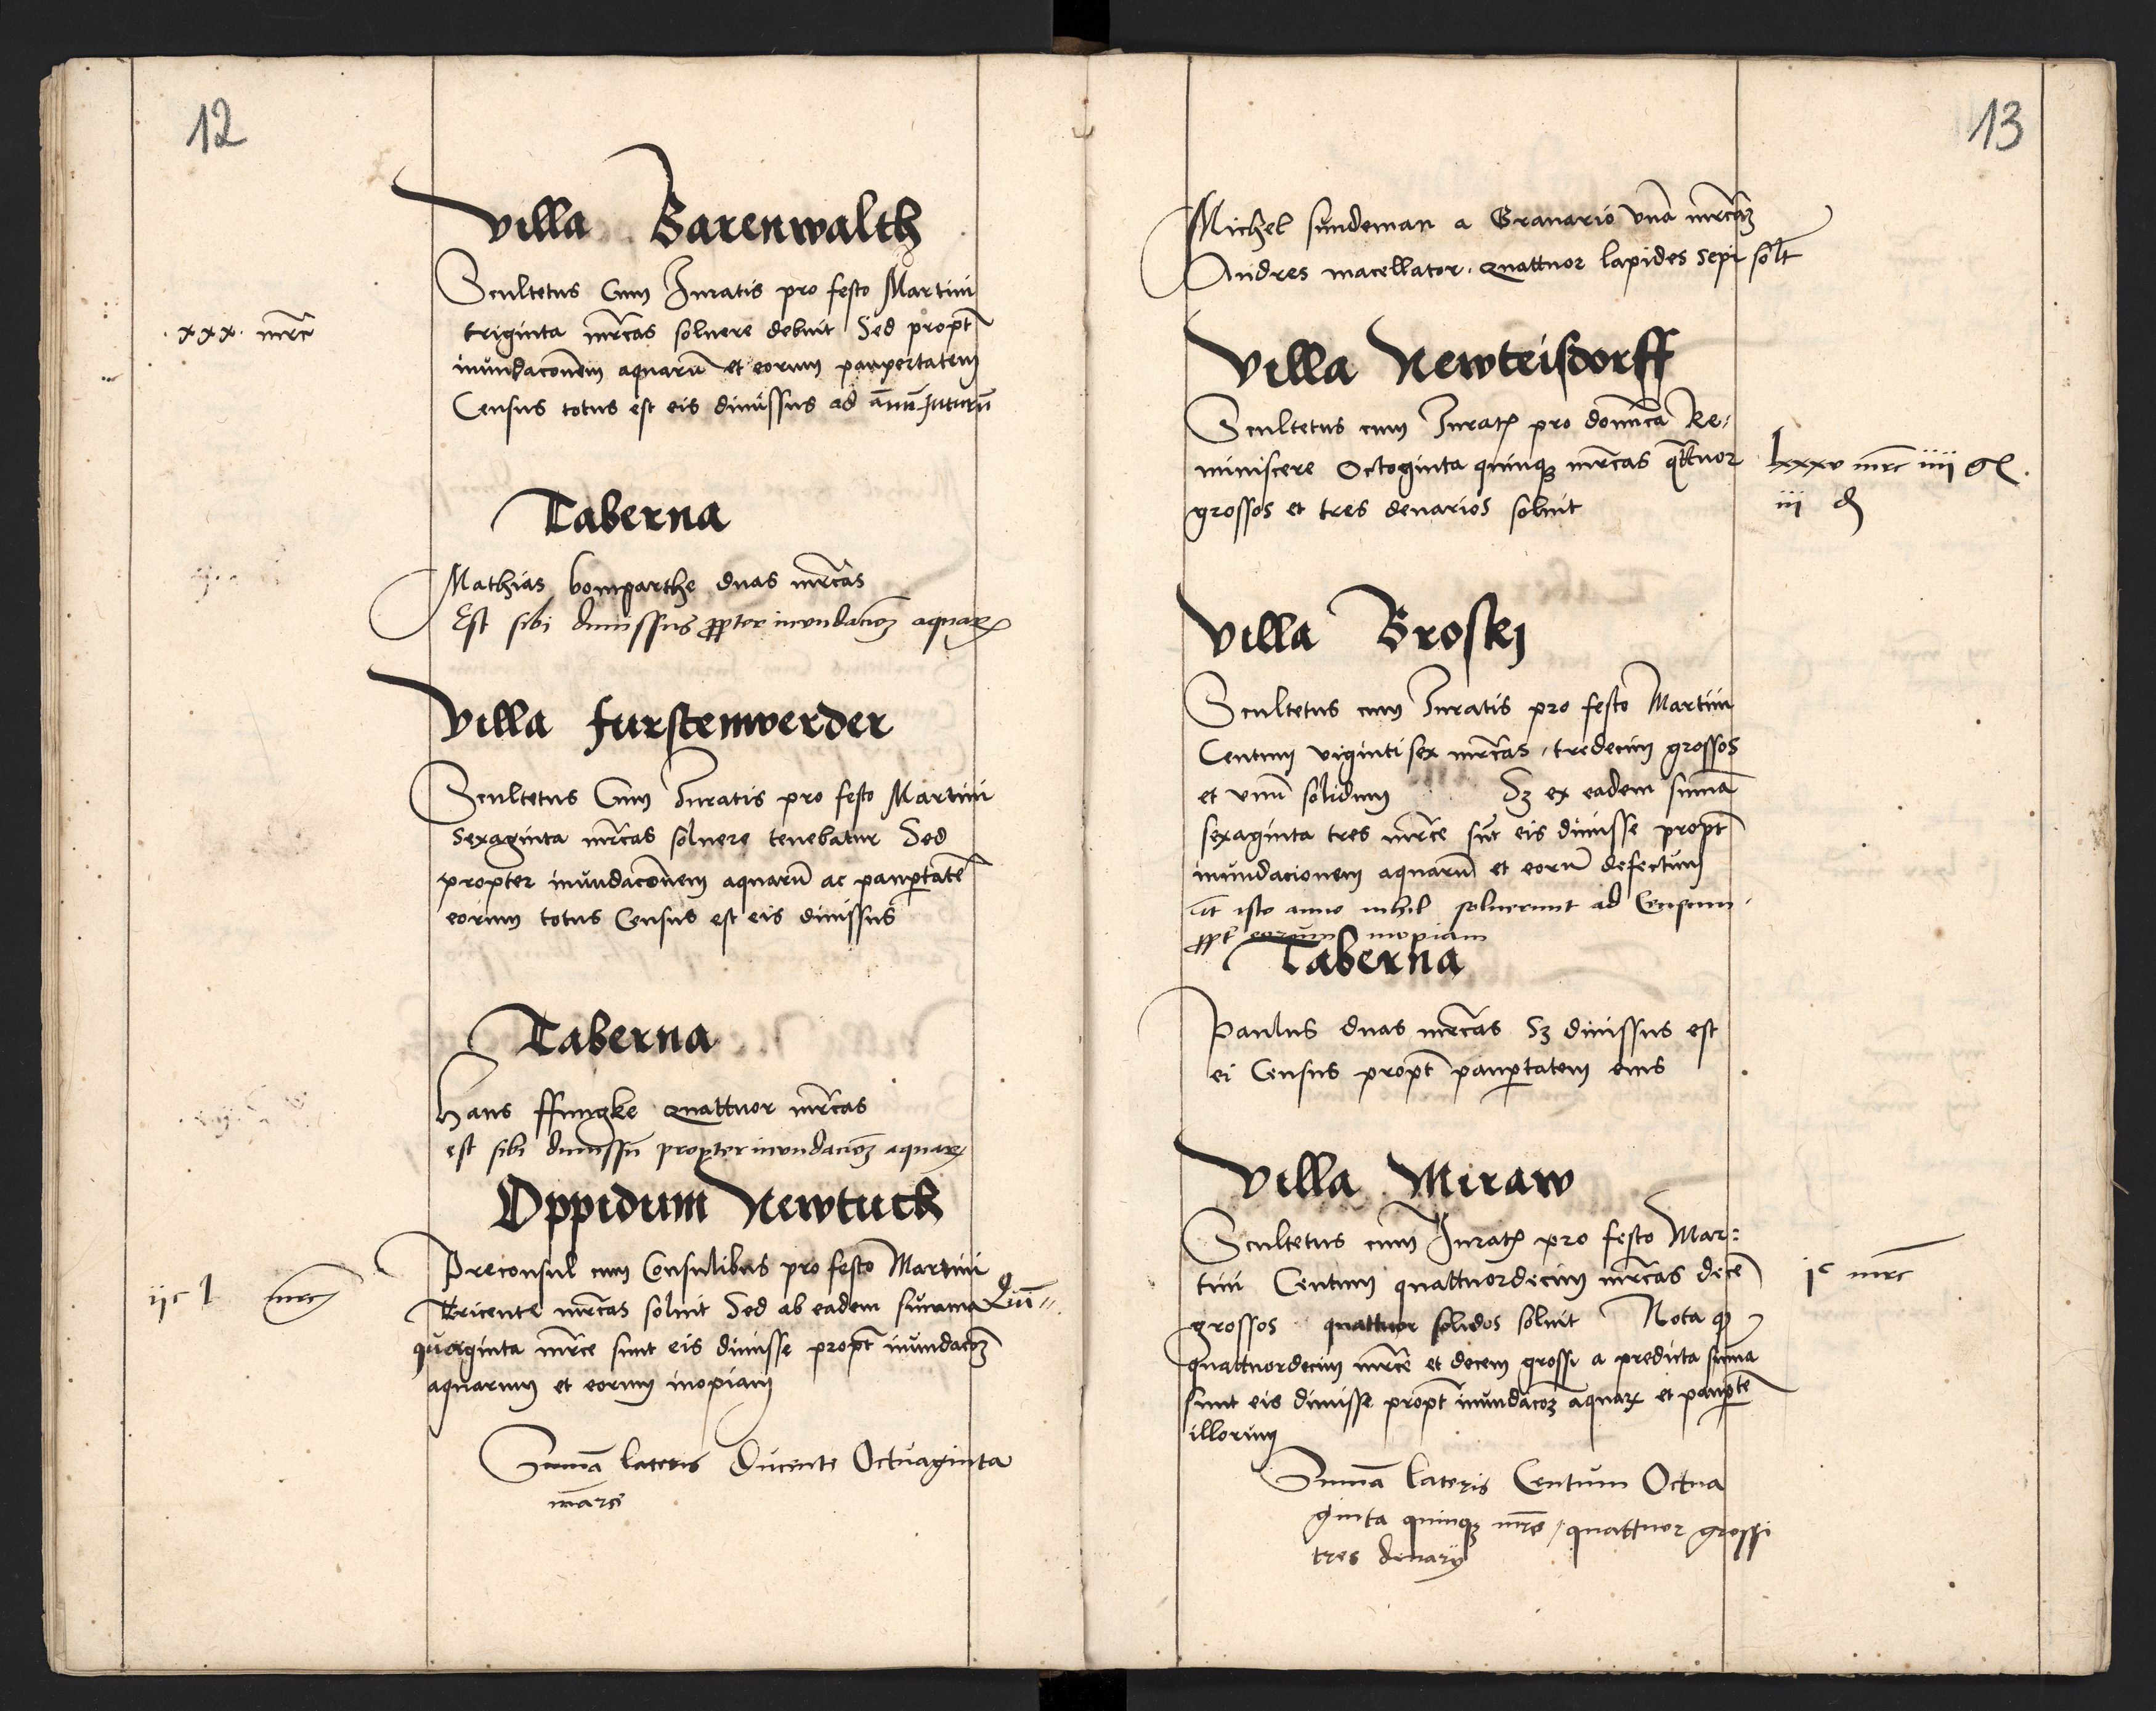 12
Villa Barenwalth
Scultetus Cum Iuratis pro festo Martini
xxx mrc
triginta mrcas soluere debuit Sed propt
inundaconem aquarū et eorum paupertatem
Census totus est eis dimissus ad annū futurū
Taberna
Mathias bomgarthe duas mrcas
Est sibi dimissus ꝓpter inondacioꝫ aquaꝝ
Villa furstenwerder
Scultetus Cum Iuratis pro festo Martini
Sexaginta mrcas soluere tenebatur Sed
propter inundaconem aquarū ac pauꝑtatē
eorum totus Census est eis dimissus
Taberna
Hans ffungke quattuor mrcas
est sibi dimissū propter inondacioꝫ aquaꝝ
Oppidum Newtuch
Preconsul cum Consulibus pro festo Martini
ijc l mrc
Tricente mrcas soluit Sed ab eadem summa Quī〃
quaginta mrce sunt eis dimisse propt inundacoꝫ
aquarum et eorum inopiam
Summa lateris Ducente Octuaginta
marc
13
Michel sundeman a Granario vna mrcaꝫ
Andres macellator quattuor lapides sepi solt
Villa Newteisdorff
Scultetus cum Iuratꝭ pro domīca Re,
miniscere Octoginta quinqꝫ mrcas qttuor
lxxxv mrc iiii gꝭ
grossos et tres denarios soluit
iii d
Villa Broskj
Scultetus cum Iuratis pro festo Martini
Centum viginti sex mrcas, tredecim grossos
et vnū solidum Sꝫ ex eadem sumā
sexaginta tres mrce sūt eis dimisse propt
inundacionem aquarū et eorū defectum
isto anno nihil soluerunt ad Censum
ꝓpt eorum inopiam
Taberna
Paulus duas mrcas Sꝫ dimissus est
ei Census propt pauꝑtatem eius
Villa Miraw
Scultetus cum Iuratꝭ pro festo Mar:
tini Centum quattuordecim mrcas decē
jc mrc
grossos quattuor solidos soluit Nota ꝙ
quattuordecim mrce et decem grossi a predicta suma
sunt eis dimisse propt inundacoꝫ aquaꝝ et pauꝑte
illorum
Summa lateris Centum Octua
ginta quinqꝫ mrc, quattuor grossi
tres denarij